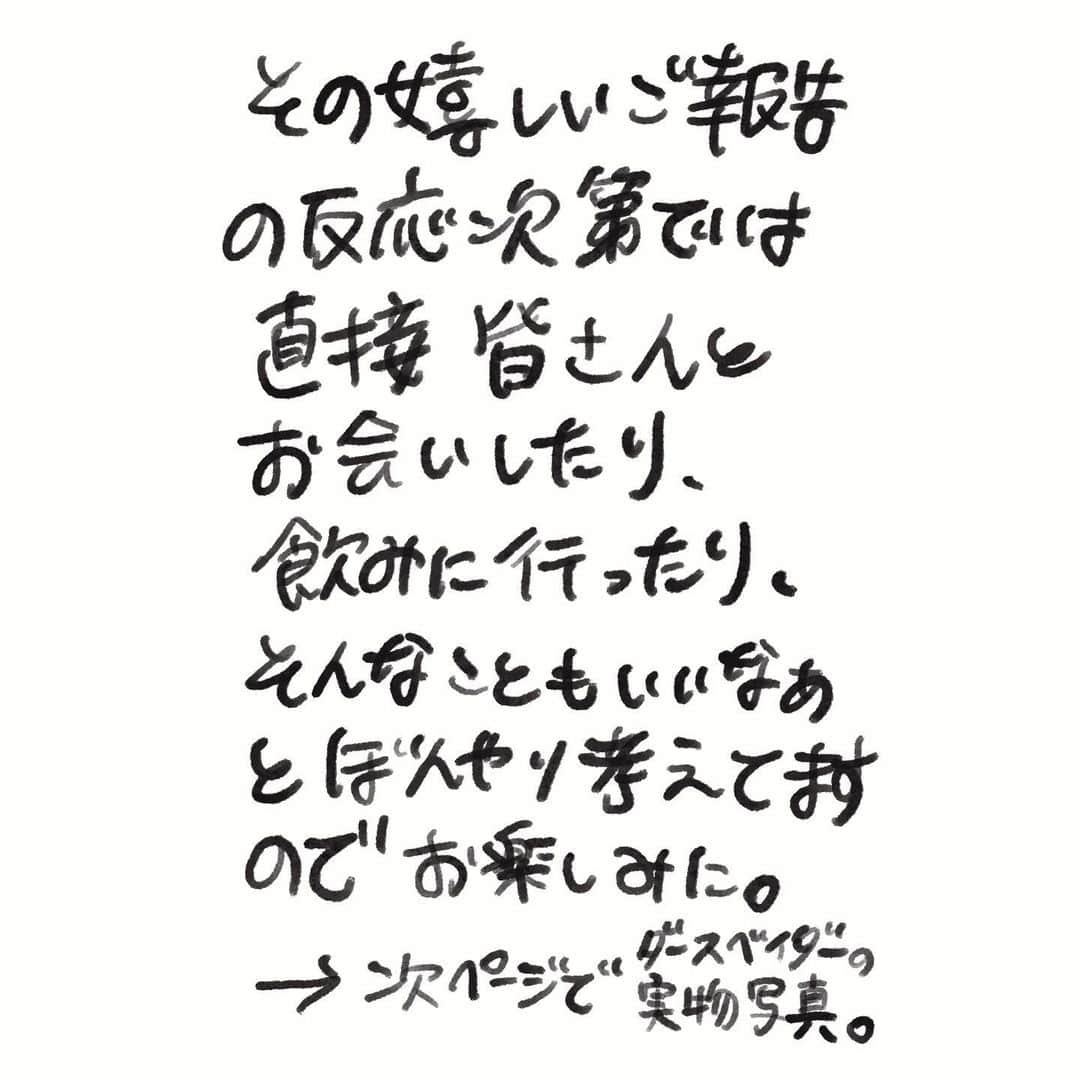 その嬉しいご報告
の反応次第では
直接 皆さんと
お会いしたり、
飲みに行ったり、
そんなこともいいなぁ
とぼんやり考えてます
のでお楽しみに。
→次ページでダースベイダーの
実物写真。